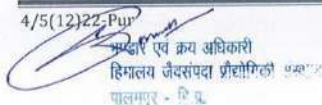 4/5(12)22-Pur
भण्डार एवं क्रय अधिकारी
हिमालय जैवसंपदा प्रौद्योगिकी संस्थान
पालमपुर - हि.प्र.